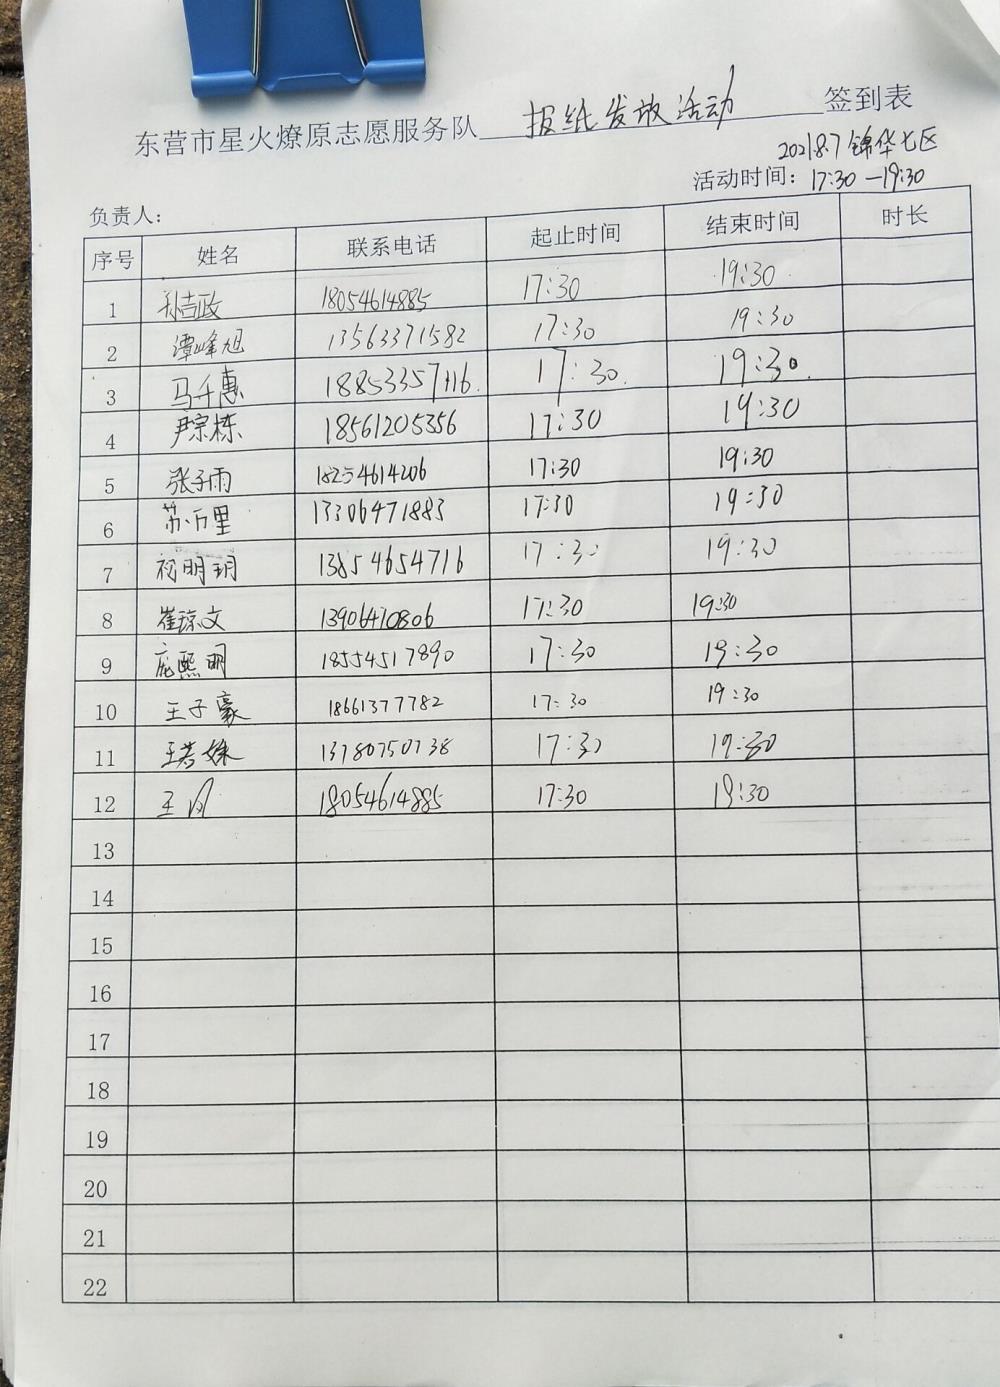 东营市星火燎原志愿服务队 报纸发放活动 签到表
2021.8.7 锦华七区
活动时间：17:30—19:30
负责人：
序号 姓名 联系电话 起止时间 结束时间 时长
1 孙吉政 18054614885 17:30 19:30
2 谭峰旭 13563371582 17:30 19:30
3 马千惠 17:30. 19:30.
4 尹宗栋 18561205356 17:30 19:30
5 张子雨 18254614206 17:30 19:30
6 苏万里 13306471883 17:30 19:30
7 祝明玥 13854654716 17:30 19:30
8 崔琼文 13906470806 17:30 19:30
9 庞熙明 18554517890 17:30 19:30
10 王子豪 18661377782 17:30 19:30
11 王若姝 13780750738 17:30 19:30
12 王 18054614885 17:30 19:30
13
14
15
16
17
18
19
20
21
22